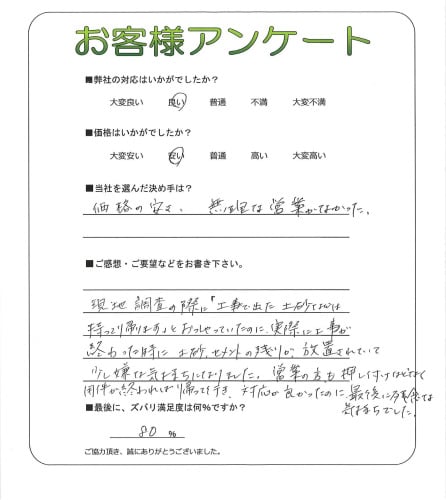 お客様アンケート
■弊社の対応はいかがでしたか？
大変良い 良い 普通 不満 大変不満
■価格はいかがでしたか？
大変安い 安い 普通 高い 大変高い
■当社を選んだ決め手は？
価格の安さ、無理な営業がなかった。
■ご感想・ご要望などをお書き下さい。
現地調査の際に「工事で出た土砂などは
持って帰ります」とおっしゃっていたのに、実際に工事が
終わった時に土砂、セメントの残りが放置されていて
少し嫌な気持ちになりました。営業の方も押し付けなどなく
用件が終われば帰って行き、対応が良かったのに、最後に残念な
気持ちでした。
■最後に、ズバリ満足度は何％ですか？
80 ％
ご協力頂き、誠にありがとうございました。